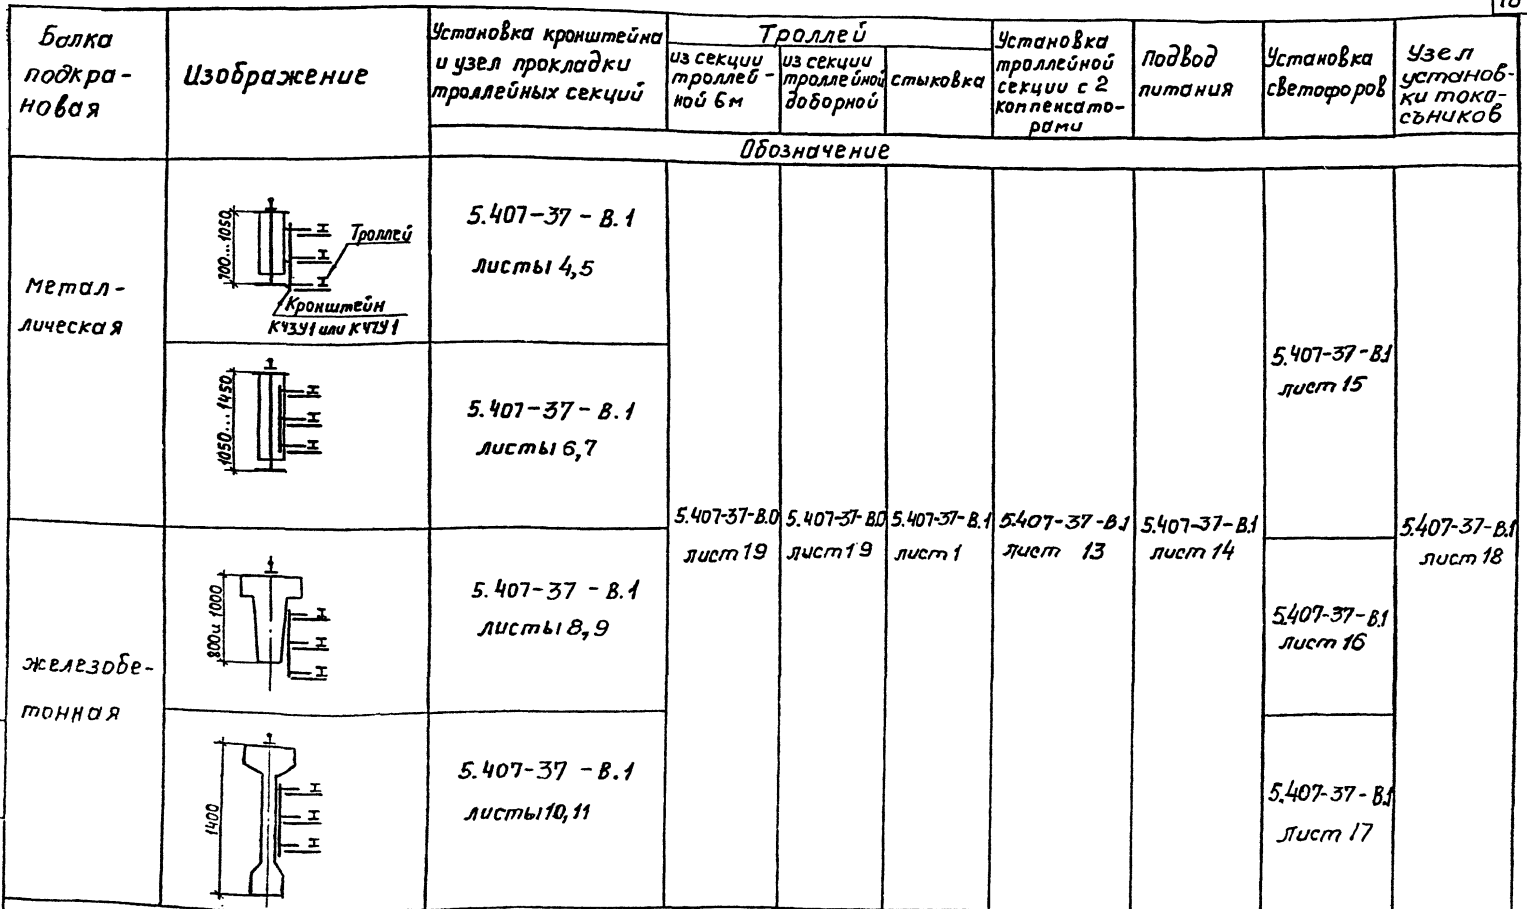 18
Балка
подкра-
новая
Изображение
Установка кронштейна
и узел прокладки
троллейных секций
Троллей
из секции
троллей-
ной 6м
из секции
троллейной
доборной
стыковка
Установка
троллейной
секции с 2
компенсато-
рами
Подвод
питания
Установка
светофоров
Узел
установ-
ки тока-
съников
Обозначение
Метал-
лическая
700...1050
Троллей
Кронштейн
5.407-37-В.1
листы 4,5
1050...1450
5.407-37-В.1
листы 6,7
5.407-37-В.1
лист 15
5.407-37-В.0
лист 19
5.407-37-В.0
лист 19
5.407-37-В.1
лист 1
5.407-37-В.1
лист 13
5.407-37-В.1
лист 14
5.407-37-В.1
лист 18
железобе-
тонная
800 и 1000
5.407-37-В.1
листы 8,9
5.407-37-В.1
лист 16
1400
5.407-37-В.1
листы 10,11
5.407-37-В.1
лист 17